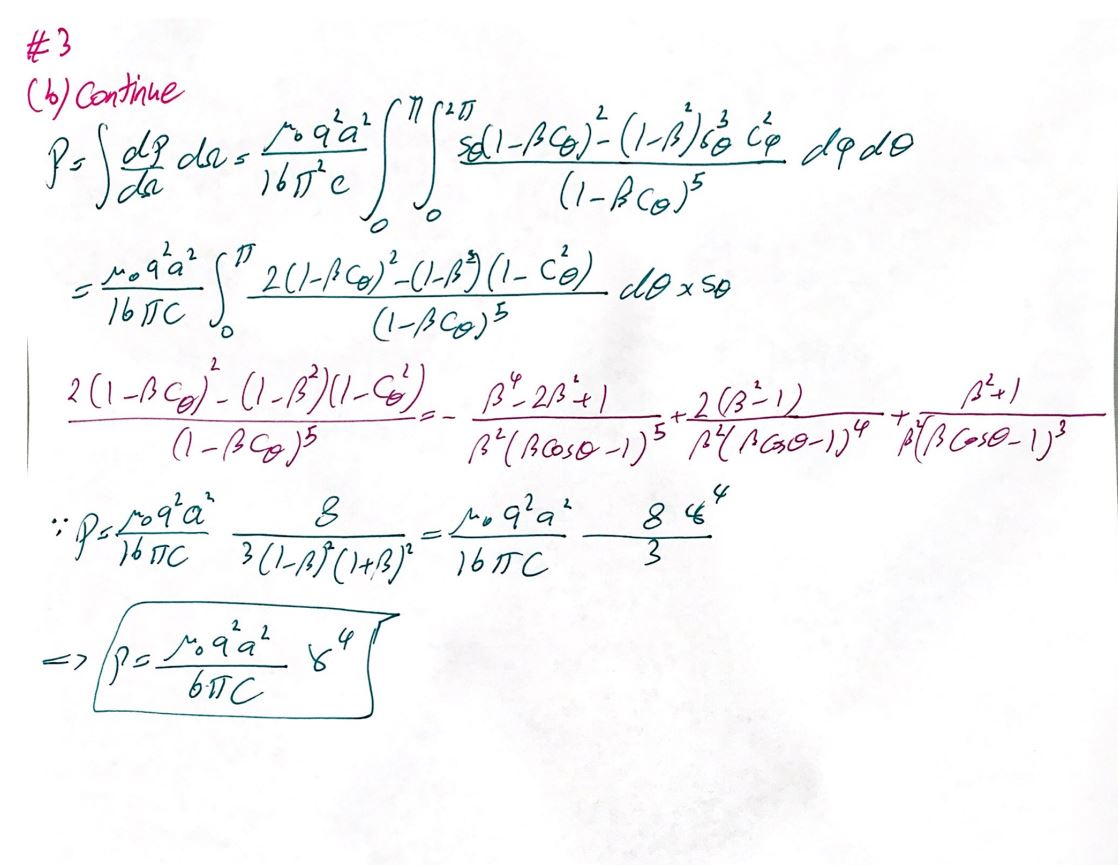 #3
(b) Continue
P = ∫ dP/dΩ dΩ = μ₀q²a²/16π²c ∫₀^π ∫₀^2π sθ(1-βcθ)² - (1-β²)sθ³ cφ² / (1-βcθ)⁵ dφdθ
= μ₀q²a²/16πc ∫₀^π 2(1-βcθ)² - (1-β²)(1-c²θ) / (1-βcθ)⁵ dθ × sθ
2(1-βcθ)² - (1-β²)(1-cθ²) / (1-βcθ)⁵ = - β⁴-2β²+1 / β²(βcosθ-1)⁵ + 2(β²-1) / β²(βcosθ-1)⁴ + β²+1 / β²(βcosθ-1)³
∵ P = μ₀q²a²/16πc 8 / 3(1-β)²(1+β)² = μ₀q²a²/16πc 8γ⁴/3
=> P = μ₀q²a²/6πc γ⁴